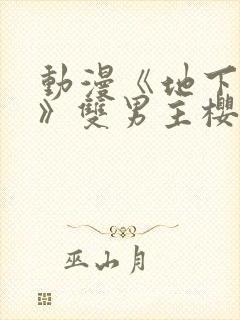 動漫《地下
》雙男主櫻
巫山月